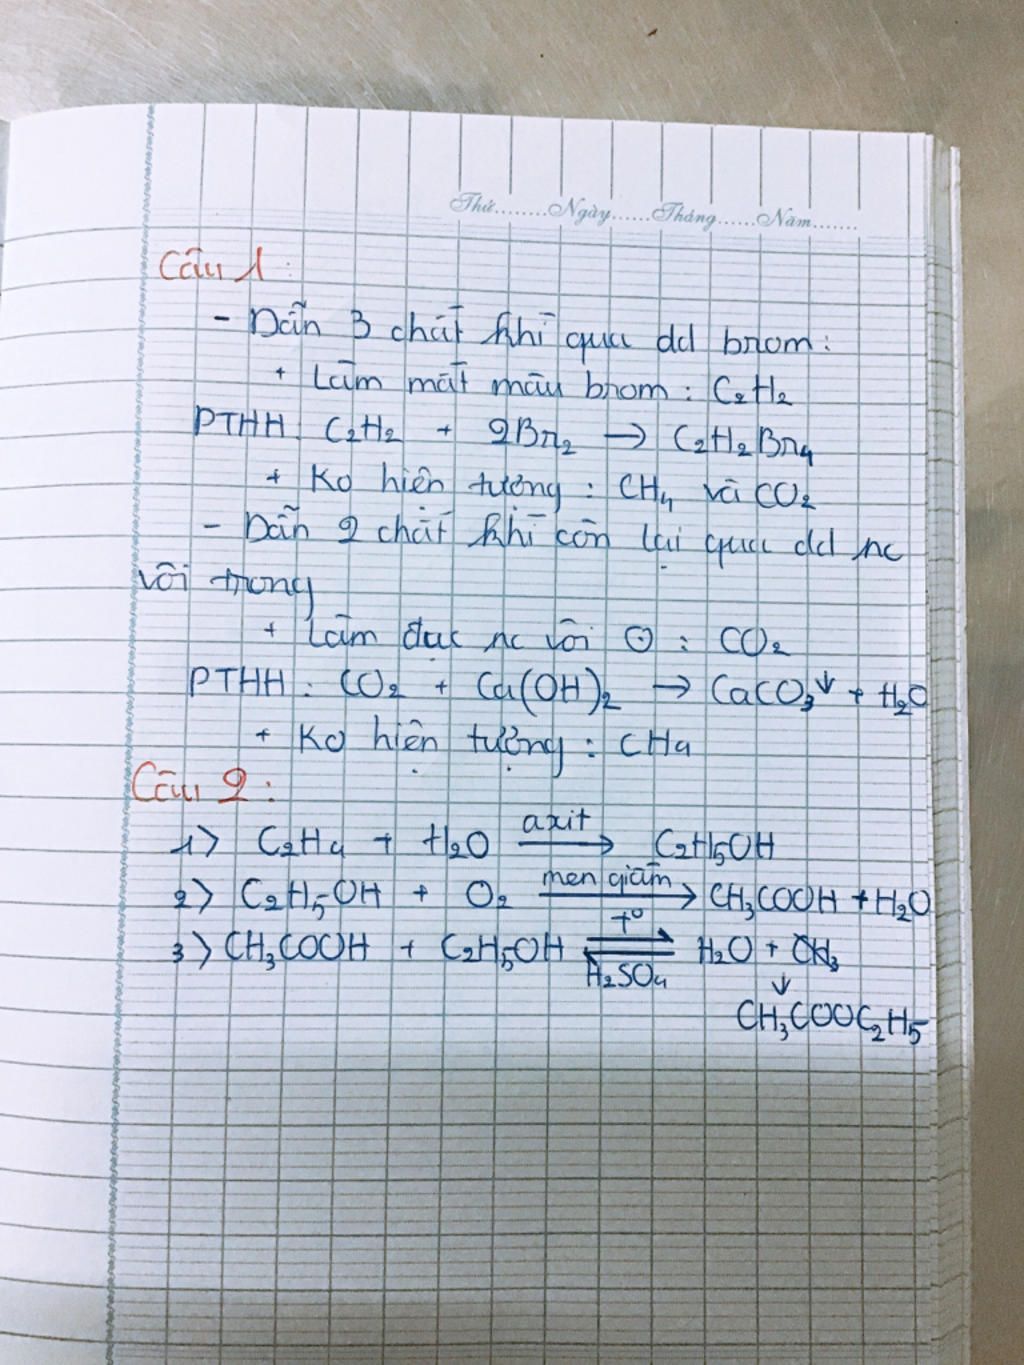 Thứ........Ngày......Tháng......Năm.......
Câu 1:
- Dẫn 3 chất khí qua dd brom:
+ Làm mất màu brom: C₂H₂
PTHH: C₂H₂ + 2Br₂ → C₂H₂Br₄
+ Ko hiện tượng: CH₄ và CO₂
- Dẫn 2 chất khí còn lại qua dd nc
vôi trong
+ Làm đục nc vôi ⊙: CO₂
PTHH: CO₂ + Ca(OH)₂ → CaCO₃↓ + H₂O
+ Ko hiện tượng: CH₄
Câu 2:
1> C₂H₄ + H₂O axit → C₂H₅OH
2> C₂H₅OH + O₂ men giấm → CH₃COOH + H₂O
3> CH₃COOH + C₂H₅OH t° ⇌ H₂SO₄ H₂O + CH₃
↓
CH₃COOC₂H₅